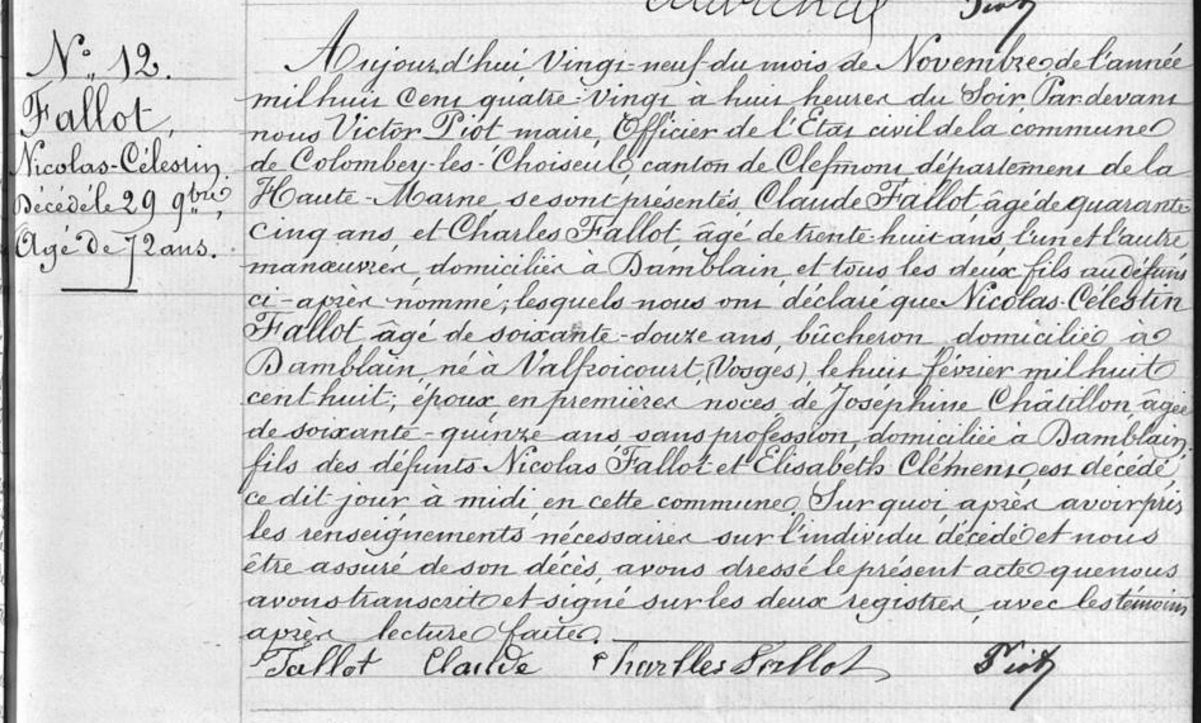 Piot
N° 12.
Fallot,
Nicolas-Célestin.
Décédé le 29 9bre,
Agé de 72 ans.
Aujourd'hui Vingt-neuf du mois de Novembre de l'année
mil huit cent quatre-vingt à huit heures du Soir Par devant
nous Victor Piot maire, Officier de l'Etat civil de la commune
de Colombey-les-Choiseul, canton de Clefmont département de la
Haute-Marne se sont présentés Claude Fallot, âgé de quarante
cinq ans, et Charles Fallot, âgé de trente-huit ans, l'un et l'autre
manœuvres, domiciliés à Damblain, et tous les deux fils au défunt
ci-après nommé; lesquels nous ont déclaré que Nicolas-Célestin
Fallot, âgé de soixante-douze ans, bûcheron, domicilié à
Damblain, né à Valfroicourt, (Vosges), le huit février mil huit
cent huit; époux en premières noces de Joséphine Châtillon, âgée
de soixante-quinze ans sans profession, domiciliée à Damblain,
fils des défunts Nicolas Fallot et Elisabeth Clément, est décédé
ce dit jour à midi en cette commune. Sur quoi après avoir pris
les renseignements nécessaires sur l'individu décédé et nous
être assuré de son décès, avons dressé le présent acte que nous
avons transcrit et signé sur les deux registres, avec les témoins
après lecture faite.
Fallot Claude Charlles Fallot Piot